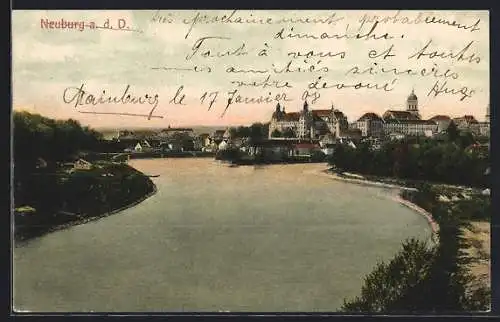 Neuburg a. d. D.
Dès prochainement, probablement
dimanche.
Tout à vous et toutes
mes amitiés sincères
votre dévoué Hugo
Mainburg le 17 janvier 08